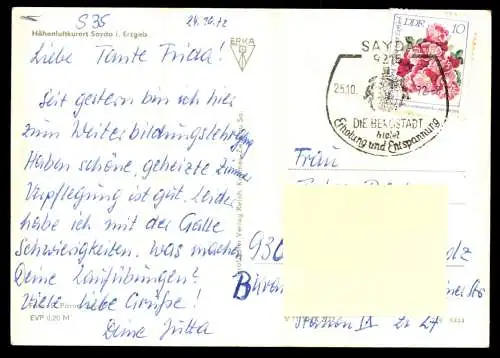 S 35
24.10.72
Höhenluftkurort Sayda i. Erzgeb.
ERKA
Liebe Tante Frieda!
Seit gestern bin ich hier
zum Weiterbildungslehrgang
Haben schöne, geheizte Zimmer
Verpflegung ist gut. Leider
habe ich mit der Galle
Schwierigkeiten. Was machen
Deine Laufübungen?
Viele liebe Grüße!
Deine Jutta
EVP 0,20 M
DDR 10
SAYDA
25.10.
DIE BERGSTADT
bietet
Erholung und Entspannung
Frau
930
Station